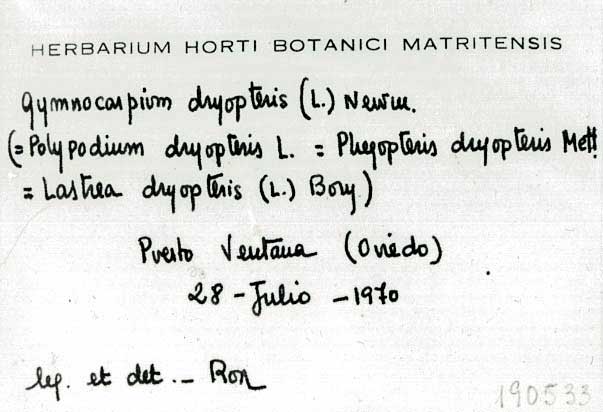 HERBARIUM HORTI BOTANICI MATRITENSIS
Gymnocarpium dryopteris (L.) Newm.
(= Polypodium dryopteris L. = Phegopteris dryopteris Mett.
= Lastrea dryopteris (L.) Bory)
Puerto Ventana (Oviedo)
28 - Julio - 1970
leg. et det. - Ron
190533